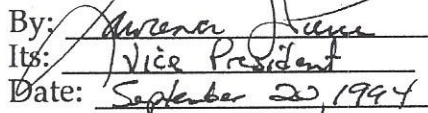 By:
Its: Vice President
Date: September 20, 1994